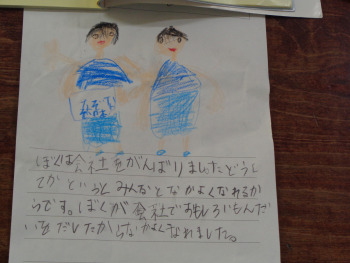 ぼくは会社をがんばりましたどうし
てかというとみんなとなかよくなれるか
らです。ぼくが会社でおもしろいもんだ
いをだしたからなかよくなれました。